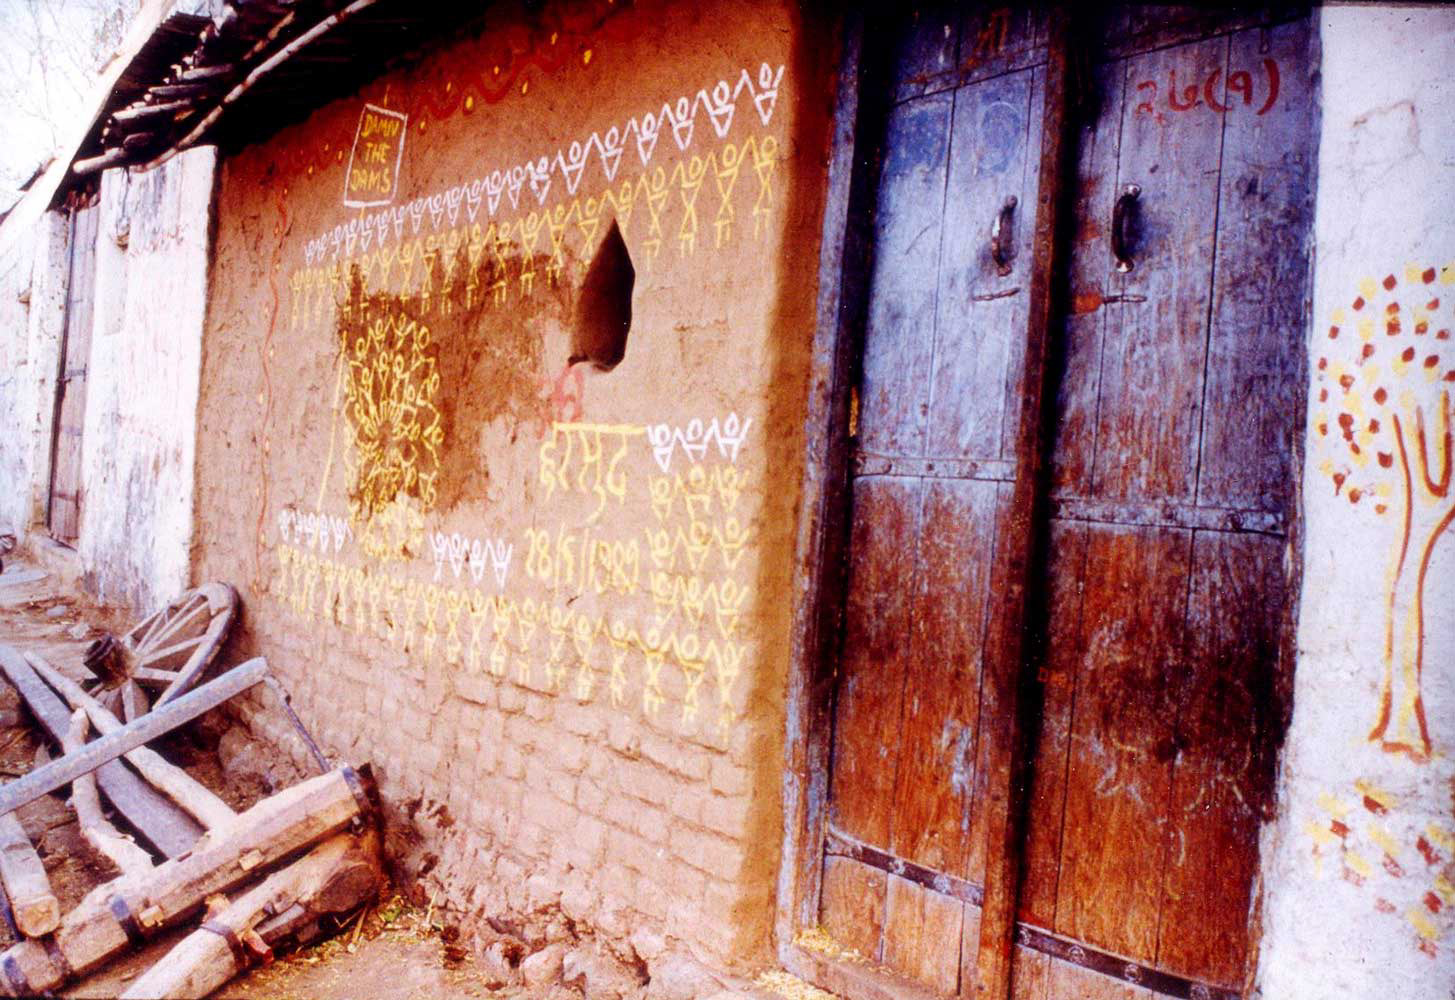 DAMN
THE
DAMS
हरसुद
28/9/1989